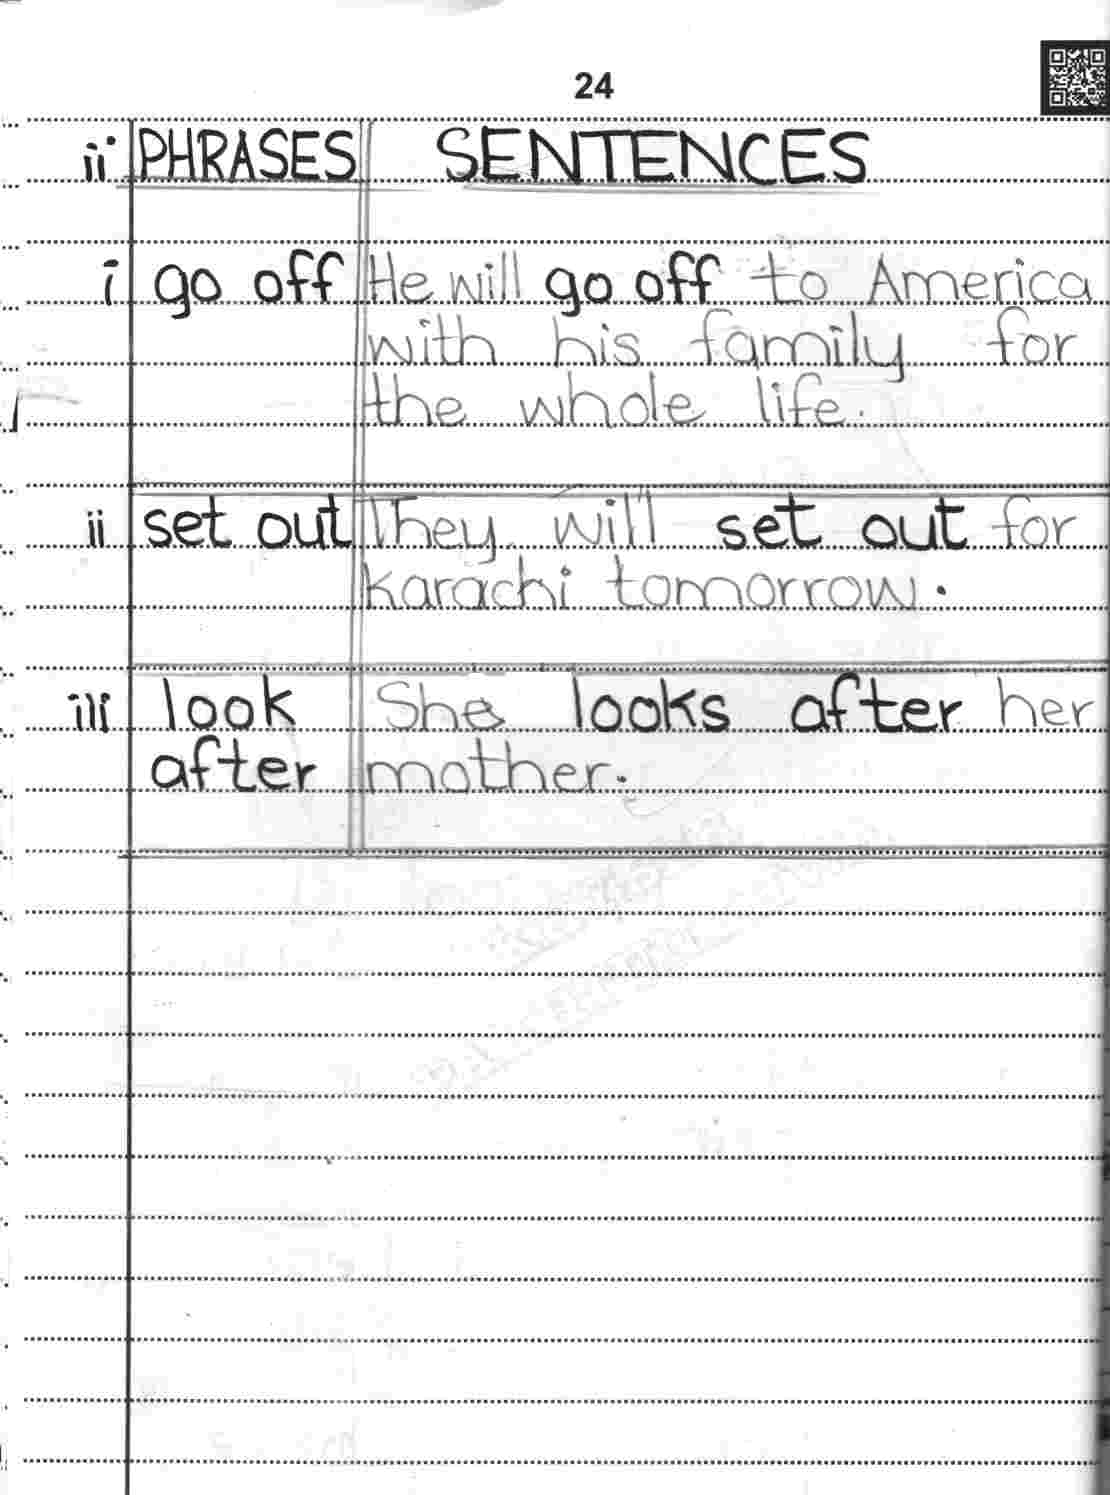 24
ii PHRASES SENTENCES
i go off He will go off to America
with his family for
the whole life.
ii set out They will set out for
karachi tomorrow.
iii look She looks after her
after mother.